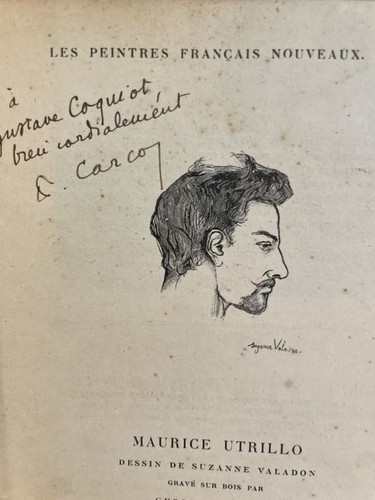 LES PEINTRES FRANÇAIS NOUVEAUX.
à
Gustave Coquiot,
bien cordialement
F. Carco
Suzanne Valadon
MAURICE UTRILLO
DESSIN DE SUZANNE VALADON
GRAVÉ SUR BOIS PAR